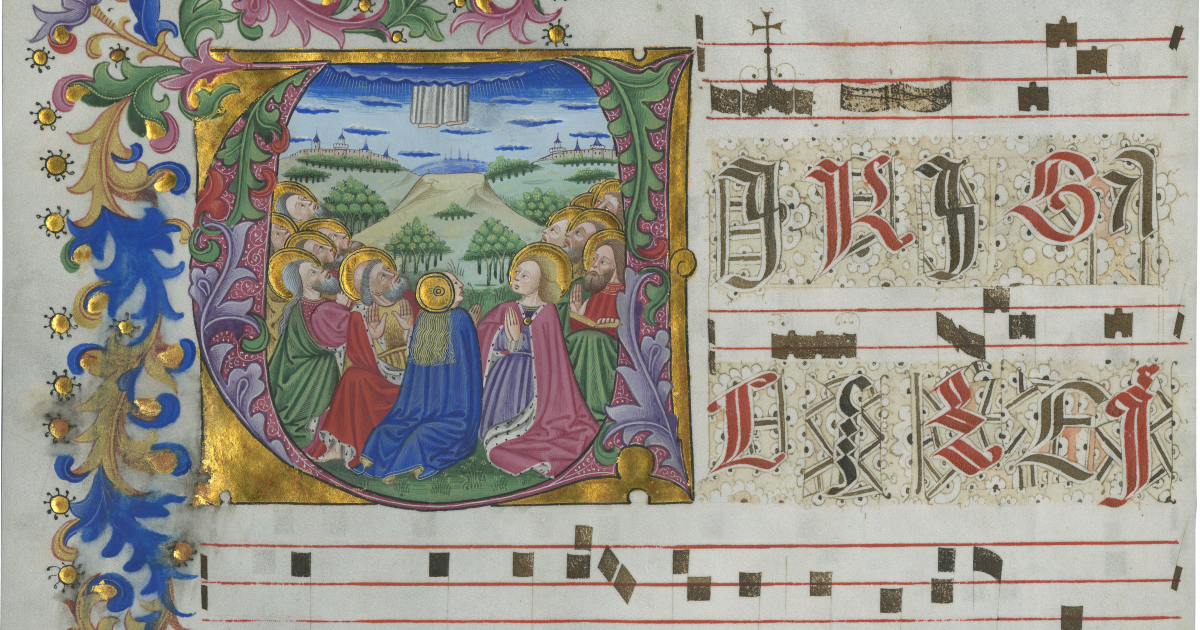 VIRI GA
LILEI